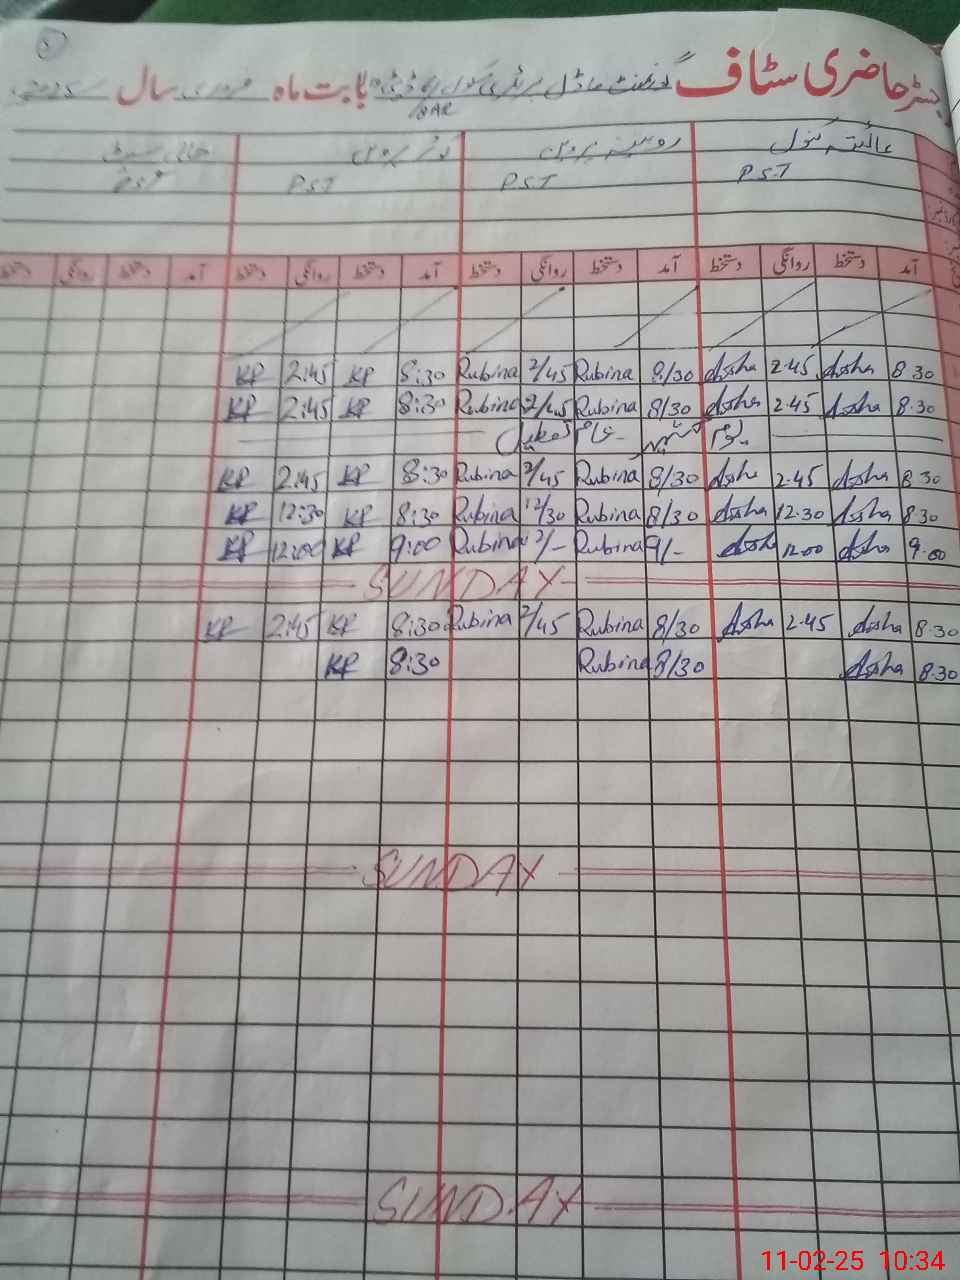 رجسٹر حاضری سٹاف گورنمنٹ ماڈل پرائمری سکول بابت ماہ فروری سال
عائشہ کنول روبینہ پروین کوثر پروین خالی سیٹ
P.S.T P.S.T P.S.T
آمد دستخط روانگی دستخط آمد دستخط روانگی دستخط آمد دستخط روانگی دستخط آمد دستخط روانگی دستخط
8.30 Assha 2.45 Assha 8/30 Rubina 2/45 Rubina 8:30 KP 2:45 KP
8.30 Assha 2.45 Assha 8/30 Rubina 2/45 Rubina 8:30 KP 2:45 KP
یوم کشمیر عام تعطیل
8.30 Assha 2.45 Assha 8/30 Rubina 2/45 Rubina 8:30 KP 2:45 KP
8.30 Assha 12.30 Assha 8/30 Rubina 12/30 Rubina 8:30 KP 12:30 KP
9.00 Assha 12.00 Assha 9/- Rubina 12/- Rubina 9:00 KP 12:00 KP
SUNDAY
8.30 Assha 2.45 Assha 8/30 Rubina 2/45 Rubina 8:30 KP 2:45 KP
8.30 Assha 8/30 Rubina 8:30 KP
SUNDAY
SUNDAY
11-02-25 10:34